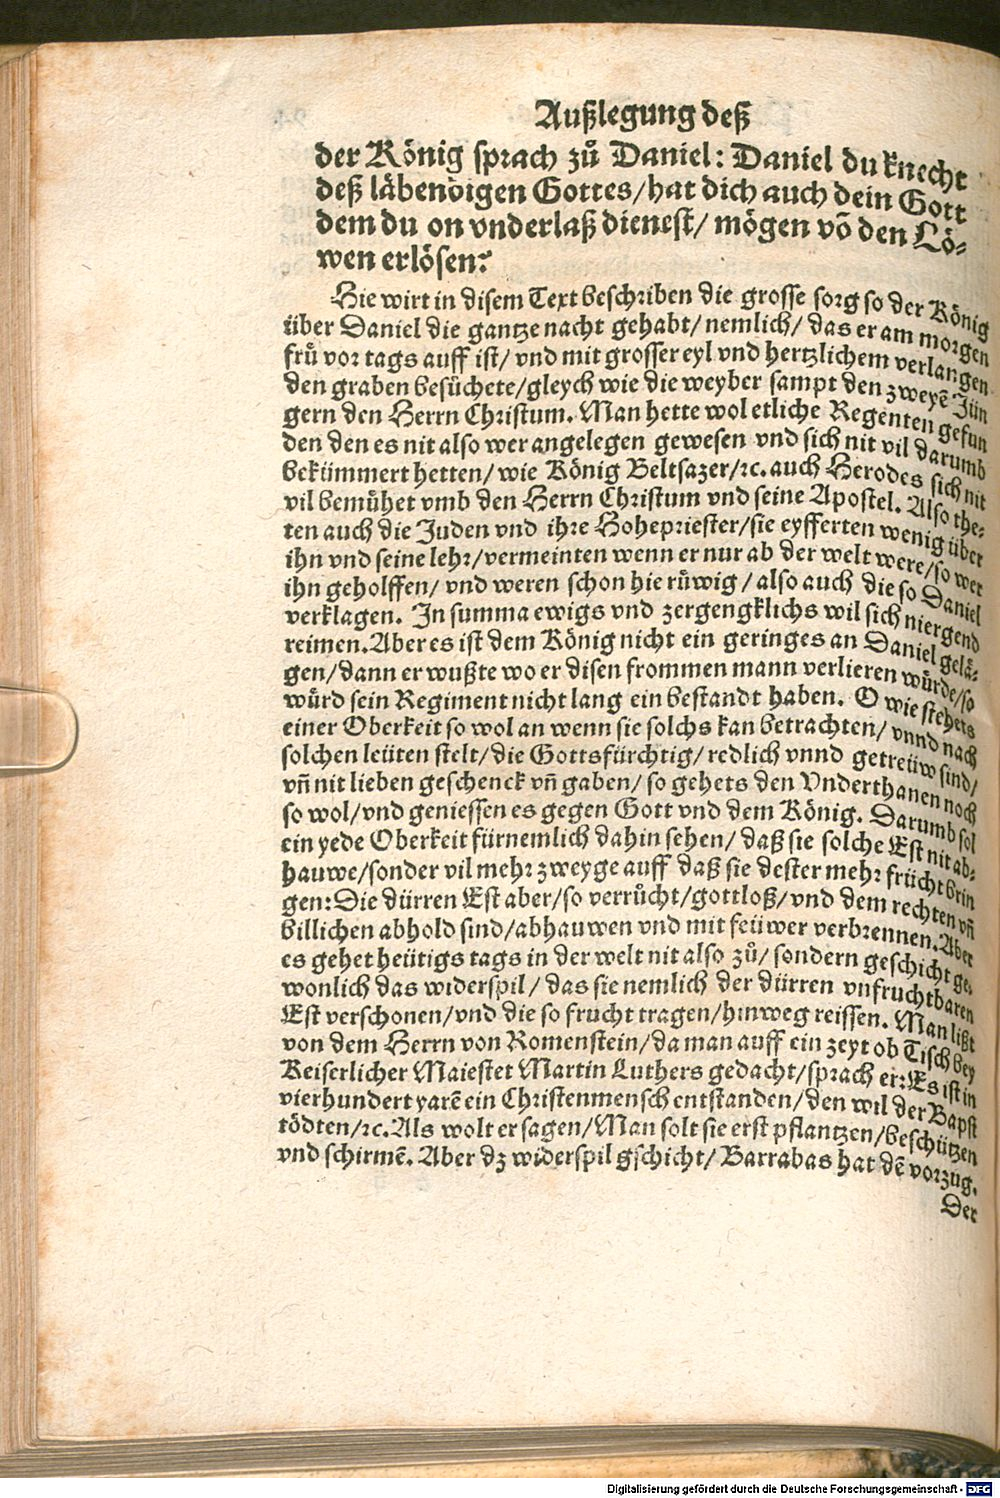 Außlegung deß
der König sprach zuͦ Daniel: Daniel du knecht
deß läbendigen Gottes/hat dich auch dein Gott
dem du on vnderlaß dienest/ mögen võ den Lö-
wen erlösen?
Hie wirt in disem Text beschriben die grosse sorg so der König
über Daniel die gantze nacht gehabt/ nemlich/ das er am morgen
fruͤ vor tags auff ist/ vnd mit grosser eyl vnd hertzlichem verlangen
den graben besuͤchete/gleych wie die weyber sampt den zweyẽ Jün
gern den Herrn Christum. Man hette wol etliche Regenten gefun
den den es nit also wer angelegen gewesen vnd sich nit vil darumb
bekümmert hetten/ wie König Beltsazer/ꝛc. auch Herodes sich nit
vil bemuͤhet vmb den Herrn Christum vnd seine Apostel. Also the-
ten auch die Juden vnd ihre Hohepriester/sie eyfferten wenig über
ihn vnd seine lehr/vermeinten wenn er nur ab der welt were/so wer
ihn geholffen/ vnd weren schon hie ruͤwig/ also auch die so Daniel
verklagen. In summa ewigs vnd zergengklichs wil sich niergend
reimen. Aber es ist dem König nicht ein geringes an Daniel gelä-
gen/dann er wußte wo er disen frommen mann verlieren wuͤrde/so
wuͤrd sein Regiment nicht lang ein bestandt haben. O wie stehets
einer Oberkeit so wol an wenn sie solchs kan betrachten/ vnnd nach
solchen leüten stelt/die Gottsfürchtig/ redlich vnnd getreüw sind/
vñ nit lieben geschenck vñ gaben/ so gehets den Vnderthanen noch
so wol/vnd geniessen es gegen Gott vnd dem König. Darumb sol
ein yede Oberkeit fürnemlich dahin sehen/ daß sie solche Est nit ab-
hauwe/sonder vil mehr zweyge auff daß sie dester mehr frücht brin
gen: Die dürren Est aber/so verruͤcht/gottloß/vnd dem rechten vñ
billichen abhold sind/abhauwen vnd mit feüwer verbrennen. Aber
es gehet heütigs tags in der welt nit also zuͦ/ sondern geschicht ge-
wonlich das widerspil/ das sie nemlich der dürren vnfruchtbaren
Est verschonen/vnd die so frucht tragen/hinweg reissen. Man lißt
von dem Herrn von Romenstein/da man auff ein zeyt ob Tisch bey
Keiserlicher Maiestet Martin Luthers gedacht/sprach er: Es ist in
vierhundert yarẽ ein Christenmensch entstanden/den wil der Bapst
tödten/ꝛc. Als wolt er sagen/Man solt sie erst pflantzen/beschützen
vnd schirmẽ. Aber dz widerspil gschicht/ Barrabas hat dẽ vorzug.
Der
Digitalisierung gefördert durch die Deutsche Forschungsgemeinschaft - DFG